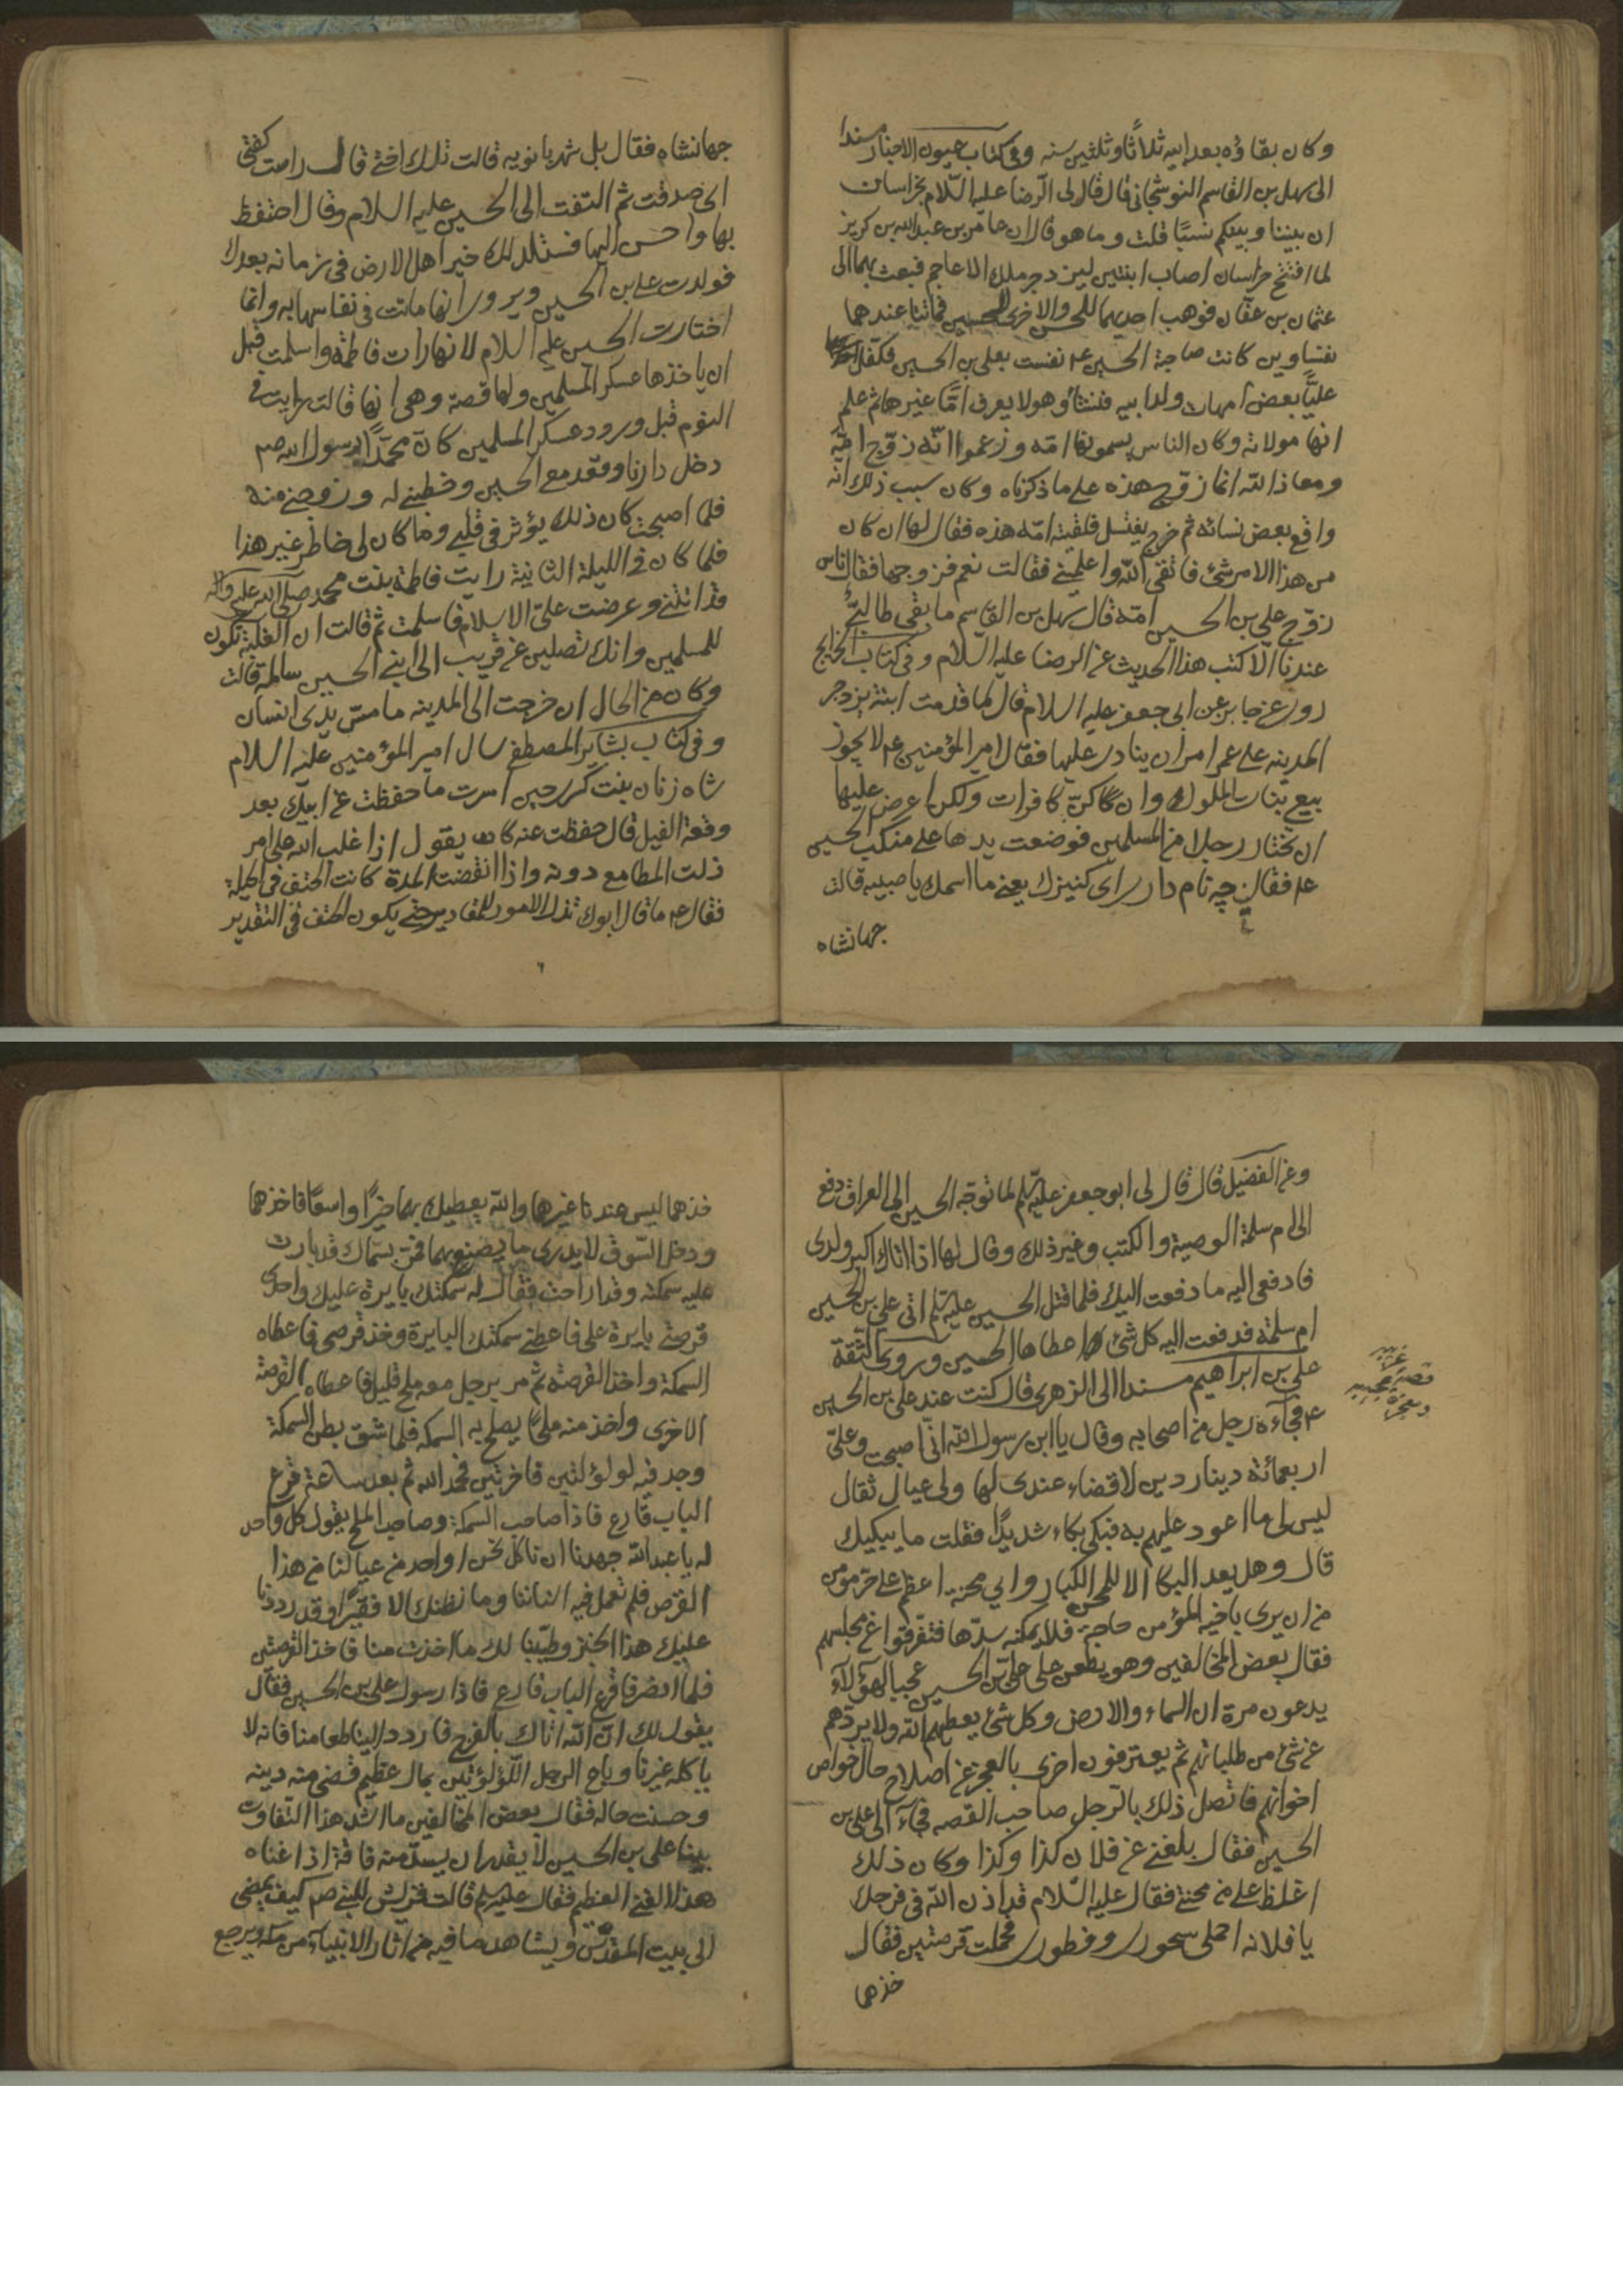 وكان بقاؤه بعد ابيه ثلاثًا وثلثين سنه وفى كتاب عيون الاخبار مسندا
الى سهل بن القاسم النوشجانى قال قال لى الرضا عليه السّلام بخراسان
ان بيننا وبينكم نسبًا قلت وما هو قال ان عامر بن عبد الله بن كريز
لما افتتح خراسان اصاب ابنتين ليزدجر ملك الاعاجم فبعث بهما الى
عثمان بن عفان فوهب احديهما للحسن والاخرى للحسين فماتتا عندهما
نفساوين كانت صاحبة الحسين ع نفست بعلى بن الحسين فكفل
عليًّا بعض امهات ولد ابيه فنشأ وهو لا يعرف امًّا غيرها ثم علم
انها مولاته وكان الناس يسمونها امّه وزعموا انّه زوّج امّه
ومعاذ الله انما زوّج هذه على ما ذكرناه وكان سبب ذلك انه
واقع بعض نسائه ثم خرج يغتسل فلقيته امّه هذه فقال لها ان كان
من هذا الامر شئ فاتقى الله واعلمينى فقالت نعم فزوجها فقال ناس
زوّج على بن الحسين امّه قال سهل بن القاسم ما بقى طالبىّ
عندنا الّا كتب هذا الحديث عن الرضا عليه السّلام وفى كتاب الخرايج
روى عن جابر عن ابى جعفر عليه السلام قال لما قدمت ابنة يزدجر
المدينه على عمر امر ان ينادى عليها فقال امير المؤمنين ع لا يجوز
بيع بنات الملوك وان كنّ كافرات ولكن اعرض عليها
ان تختار رجلا من المسلمين فوضعت يدها على منكب الحسين
ع فقال چه نام دارى اى كنيزك يعنى ما اسمك يا صبيه قالت
جهانشاه
جهانشاه فقال بل شهربانويه قالت تلك اختى قال راست كفتى
اى صدقت ثم التفت الى الحسين عليه السلام وقال احتفظ
بها واحسن اليها فستلد لك خير اهل الارض فى زمانه بعدك
فولدت على بن الحسين ويروى انها ماتت فى نفاسها به وانما
اختارت الحسين عليه السلام لانها رات فاطمة واسلمت قبل
ان ياخذها عسكر المسلمين ولها قصة وهى انها قالت رايت فى
النوم قبل ورود عسكر المسلمين كانّ محمّدًا رسول الله ص
دخل دارنا وقعد مع الحسين وخطبنى له وزوجنى منه
فلما اصبحت كان ذلك يؤثر فى قلبى وما كان لى خاطر غير هذا
فلما كان فى الليلة الثانية رايت فاطمة بنت محمد صلى الله عليه وآله
قد اتتنى وعرضت علىّ الاسلام فاسلمت ثم قالت ان الغلبة تكون
للمسلمين وانك تصلين عن قريب الى ابنى الحسين سالمة قالت
وكان من الحال ان خرجت الى المدينه ما مسّ يدى انسان
وفى كتاب بشاير المصطفى سال امير المؤمنين عليه السلام
شاه زنان بنت كسرى حين اسرت ما حفظت عن ابيك بعد
وقعة الفيل قال حفظت عنه كان يقول اذا غلب الله على امر
ذلت المطامع دونه واذا انقضت المدة كانت الحتف فى الحيلة
فقال ع ما قال ابوك تذل الامور للمقادير حتى يكون الحتف فى التقدير
وعن الفضيل قال قال لى ابو جعفر عليه السلم لما توجّه الحسين الى العراق دفع
الى ام سلمة الوصية والكتب وغير ذلك وقال لها اذا اتاك اكبر ولدى
فادفعى اليه ما دفعت اليك فلما قتل الحسين عليه السلم اتى على بن الحسين
ام سلمة فدفعت اليه كل شئ اعطاها الحسين وروى الثقة
على بن ابراهيم مسندا الى الزهرى قال كنت عند على بن الحسين
ع فجآءه رجل من اصحابه وقال يا ابن رسول الله انّى اصبحت وعلىّ
اربعمائة دينار دين لا قضاء عندى لها ولى عيال ثقال
ليس لى ما اعود عليهم به فبكى بكاء شديدًا فقلت ما يبكيك
قال وهل يعد البكا الا للمحن الكبار واى محنة اعظم على حر مومن
من ان يرى باخيه المؤمن حاجة فلا يمكنه سدّها فتفرقوا عن مجلسهم
فقال بعض المخالفين وهو يطعن على على بن الحسين عجبا لهؤلآء
يدعون مرة ان السماء والارض وكل شئ يعطيهم الله ولا يردّهم
عن شئ من طلباتهم ثم يعترفون اخرى بالعجز عن اصلاح حال خواص
اخوانهم فاتصل ذلك بالرّجل صاحب القصه فجآء الى على بن
الحسين فقال بلغنى عن فلان كذا وكذا وكان ذلك
اغلظ على من محنتى فقال عليه السّلام قد اذن الله فى فرجك
يا فلانه احملى سحورى وفطورى فحملت قرصتين فقال
خذهما
قصة عجيبه
خذهما ليس عندنا غيرها والله يعطيك بهما خيرًا واسعًا فاخذهما
ودخل السّوق لا يدرى ما يصنع بهما فمرّ بسمّاك قد بارت
عليه سمكته وقد اراحت فقال له سمكتك بايرة عليك واحدى
قرصتى بايرة على فاعطنى سمكتك البايرة وخذ قرصى فاعطاه
السمكة واخذ القرصة ثم مر برجل معه ملح قليل فاعطاه القرصة
الاخرى واخذ منه ملحًا يصلح به السمكه فلما شق بطن السمكة
وجد فيه لولؤتين فاخرتين فحمد الله ثم بعد ساعة قرع
الباب قارع فاذا صاحب السمكة وصاحب الملح يقول كل واحد
له يا عبد الله جهدنا ان ناكل نحن او احد من عيالنا من هذا
القرص فلم تعمل فيه اسناننا وما نظنك الا فقيرًا وقد رددنا
عليك هذا الخبز وطيّبنا لك ما اخذت منا فاخذ القرصتين
فلما انصرفا قرع الباب قارع فاذا رسول على بن الحسين فقال
يقول لك انّ الله اتاك بالفرج فاردد الينا طعامنا فانه لا
ياكله غيرنا وباع الرجل اللؤلؤتين بمال عظيم قضى منه دينه
وحسنت حاله فقال بعض المخالفين ما اشد هذا التّفاوت
بينا على بن الحسين لا يقدر ان يسدّ منه فاقة اذ اغناه
هذا الغنى العظيم فقال عليه السلم قالت قريش للنبى ص كيف يمضى
الى بيت المقدّس ويشاهد ما فيه من اثار الانبياء من مكة ويرجع